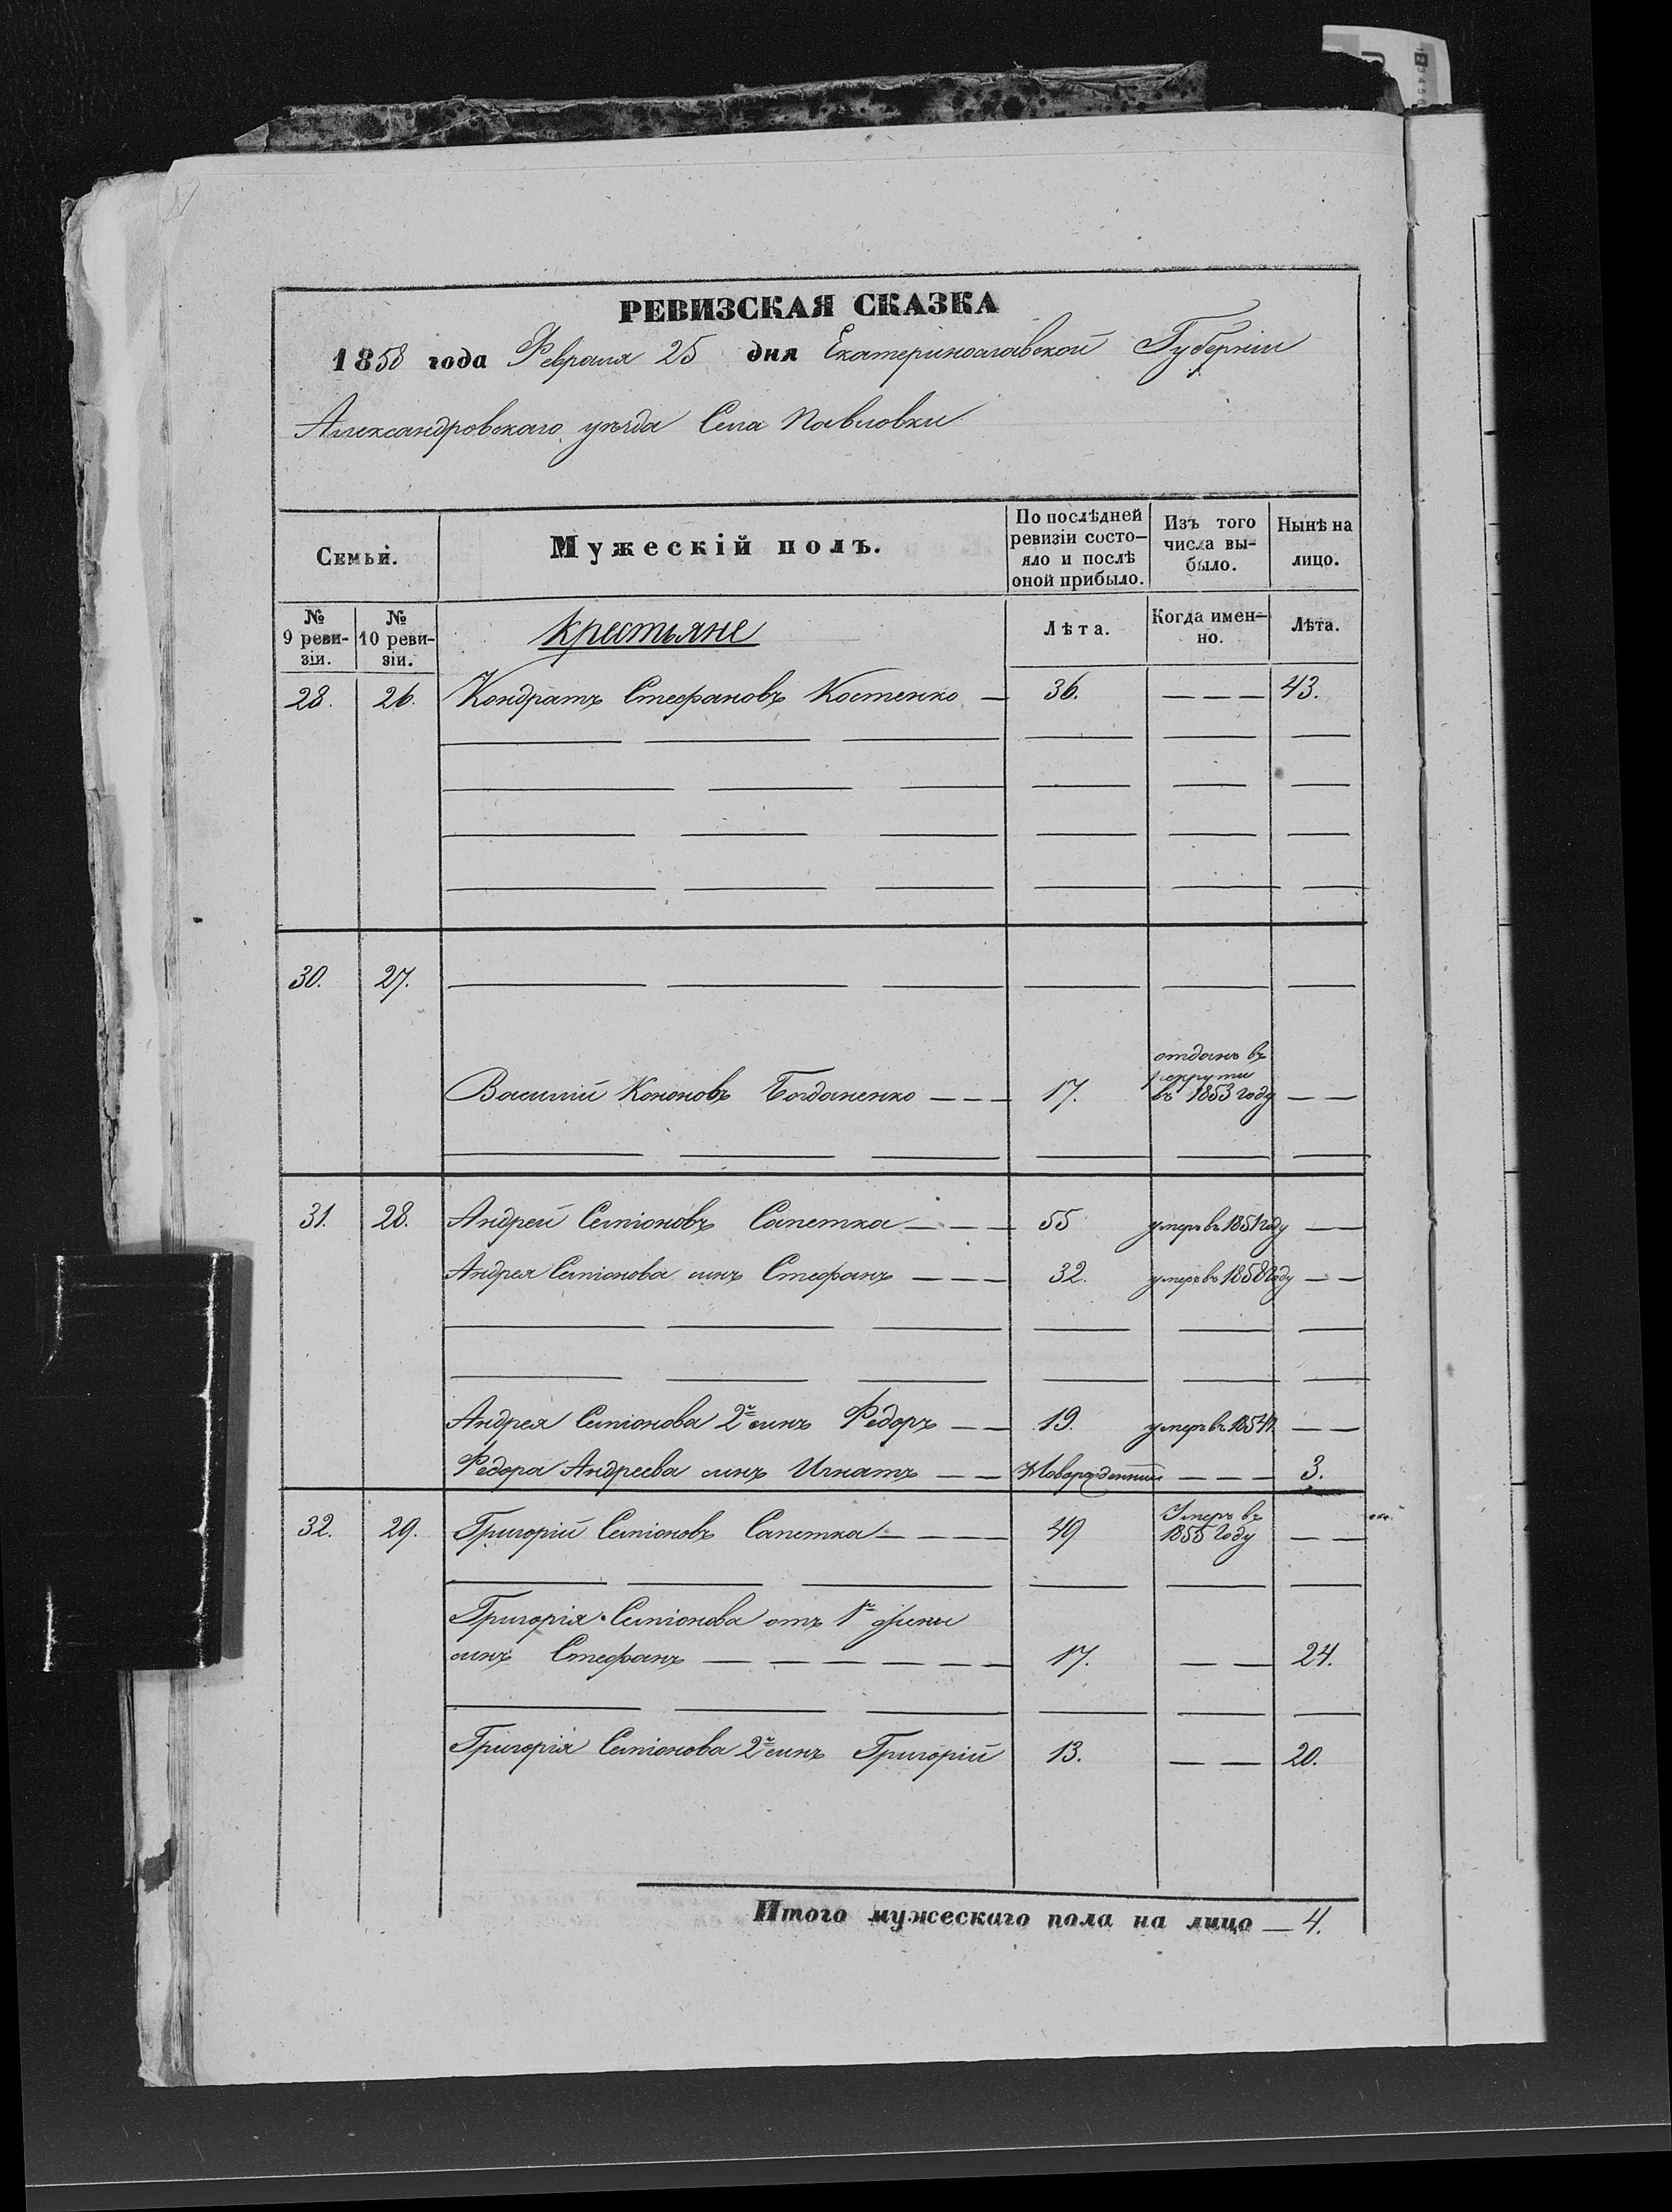 РЕВИЗСКАЯ СКАЗКА
1858 года Февраля 25 дня Екатеринославской Губерніи
Александровскаго уѣзда Села Павловки
Семьи.
Мужескій полъ.
По послѣдней ревизіи состо-
яло и послѣ
оной прибыло.
Изъ того
числа вы-
было.
Нынѣ на
лицо.
№
9 реви-
зіи.
№
10 реви-
зіи.
Крестьяне
Лѣта.
Когда имен-
но.
Лѣта.
28. 26. Кондратъ Стефановъ Костенко — 36. — — — 43.
30. 27.
отданъ въ
рекруты
Василий Кононовъ Богданенко — — — 17. въ 1853 году — —
31. 28. Андрей Семіоновъ Сапетка — — — 55 умеръ въ 1851 году — —
Андрея Семіонова сынъ Стефанъ — — — 32. умеръ въ 1858 году — —
Андрея Семіонова 2й сынъ Федоръ — — 19. умеръ въ 1854 — —
Федора Андреева сынъ Игнатъ — — Новорожденный — — — 3.
32. 29. Григорій Семіоновъ Сапетка — — — 49 Умеръ въ
1855 году — —
Григорія Семіонова отъ 1й жены
сынъ Стефанъ — — — — — — 17. — — 24.
Григорія Семіонова 2й сынъ Григорій 13. — — 20.
Итого мужескаго пола на лицо — 4.